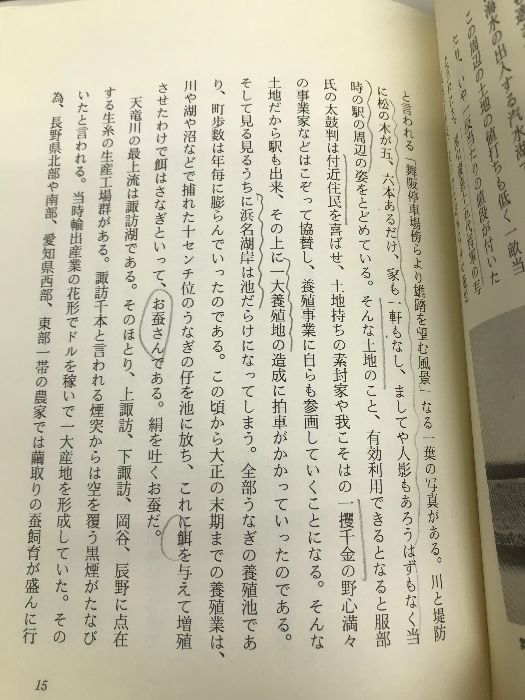 海水の出入する汽水湖で
この周辺の土地の値打ちも低く一畝当
と言われる「舞阪停車場傍らより雄踏を望む風景」なる一葉の写真がある。川と堤防
に松の木が五、六本あるだけ、家も一軒もなし、ましてや人影もあろうはずもなく当
時の駅の周辺の姿をとどめている。そんな土地のこと、有効利用できるとなると服部
氏の太鼓判は付近住民を喜ばせ、土地持ちの素封家や我こそはの一攫千金の野心満々
の事業家などはこぞって協賛し、養殖事業に自らも参画していくことになる。そんな
土地だから駅も出来、その上に一大養殖地の造成に拍車がかかっていったのである。
そして見る見るうちに浜名湖岸は池だらけになってしまう。全部うなぎの養殖池であ
り、町歩数は年毎に膨らんでいったのである。この頃から大正の末期までの養殖業は、
川や湖や沼などで捕れた十センチ位のうなぎの仔を池に放ち、これに餌を与えて増殖
させたわけで餌はさなぎといって、お蚕さんである。絹を吐くお蚕だ。
天竜川の最上流は諏訪湖である。そのほとり、上諏訪、下諏訪、岡谷、辰野に点在
する生糸の生産工場群がある。諏訪千本と言われる煙突からは空を覆う黒煙がたなび
いたと言われる。当時輸出産業の花形でドルを稼いで一大産地を形成していた。その
為、長野県北部や南部、愛知県西部、東部一帯の農家では繭取りの蚕飼育が盛んに行
15